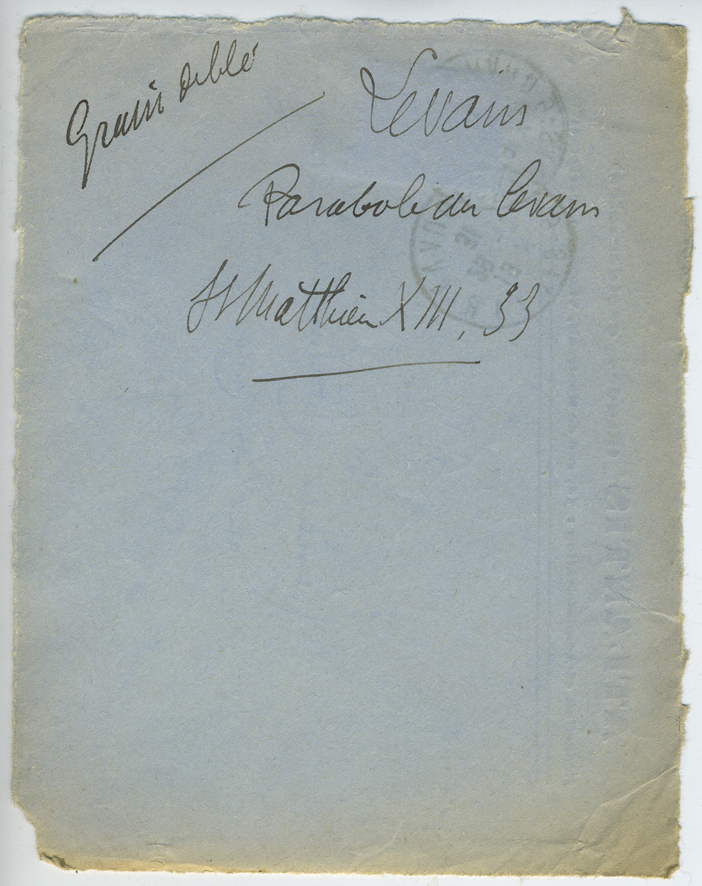 Grain de blé
Levain
Parabole du levain
St Matthieu XIII, 33